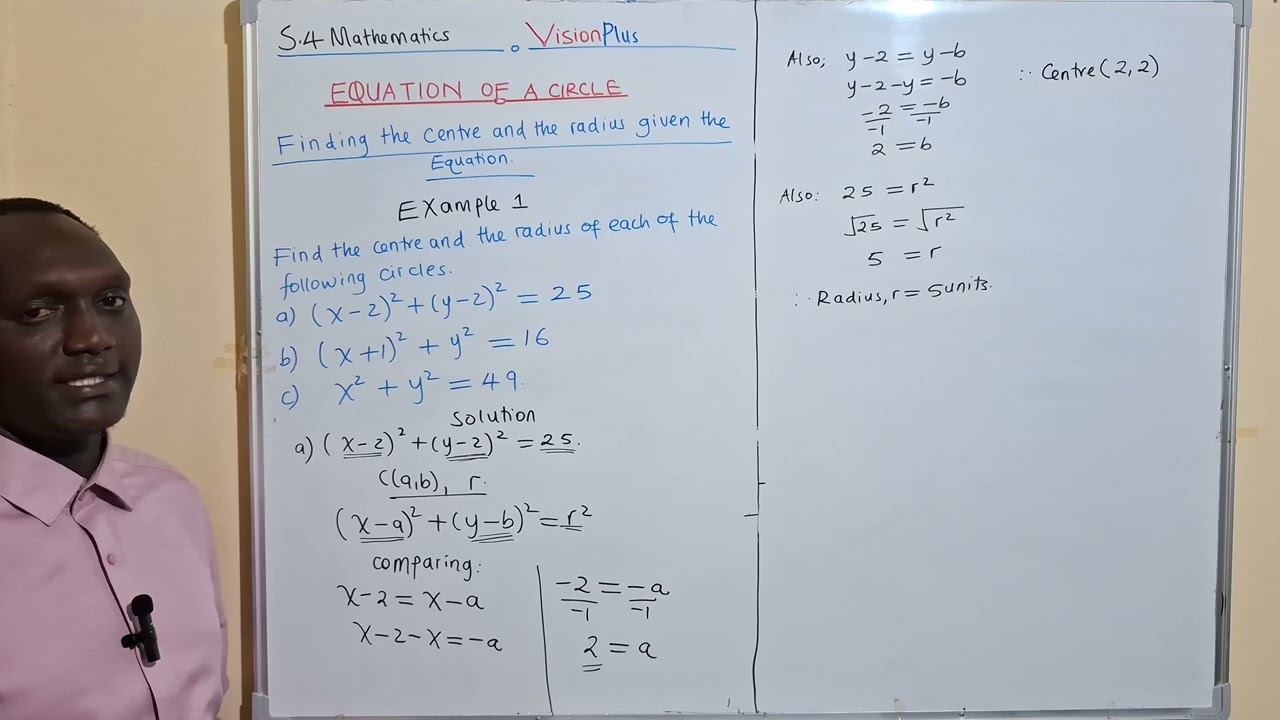 S.4 Mathematics . VisionPlus
EQUATION OF A CIRCLE
Finding the centre and the radius given the
Equation.
Example 1
Find the centre and the radius of each of the
following circles.
a) (x-2)² + (y-2)² = 25
b) (x+1)² + y² = 16
c) x² + y² = 49.
Solution
a) (x-2)² + (y-2)² = 25.
C(a,b), r.
(x-a)² + (y-b)² = r²
comparing:
x-2 = x-a
x-2-x = -a
-2/-1 = -a/-1
2 = a
Also; y-2 = y-b
y-2-y = -b
-2/-1 = -b/-1
2 = b
∴ Centre (2,2)
Also: 25 = r²
√25 = √r²
5 = r
∴ Radius, r = 5units.